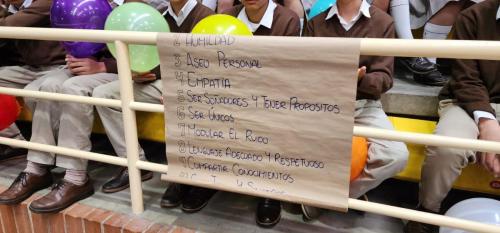 2 HUMILDAD
3 ASEO PERSONAL
4 EMPATIA
5 SER SOÑADORES Y TENER PROPOSITOS
6 SER UNICOS
7 MODULAR EL RUIDO
8 LENGUAJE ADECUADO Y RESPETUOSO
9 COMPARTIR CONOCIMIENTOS